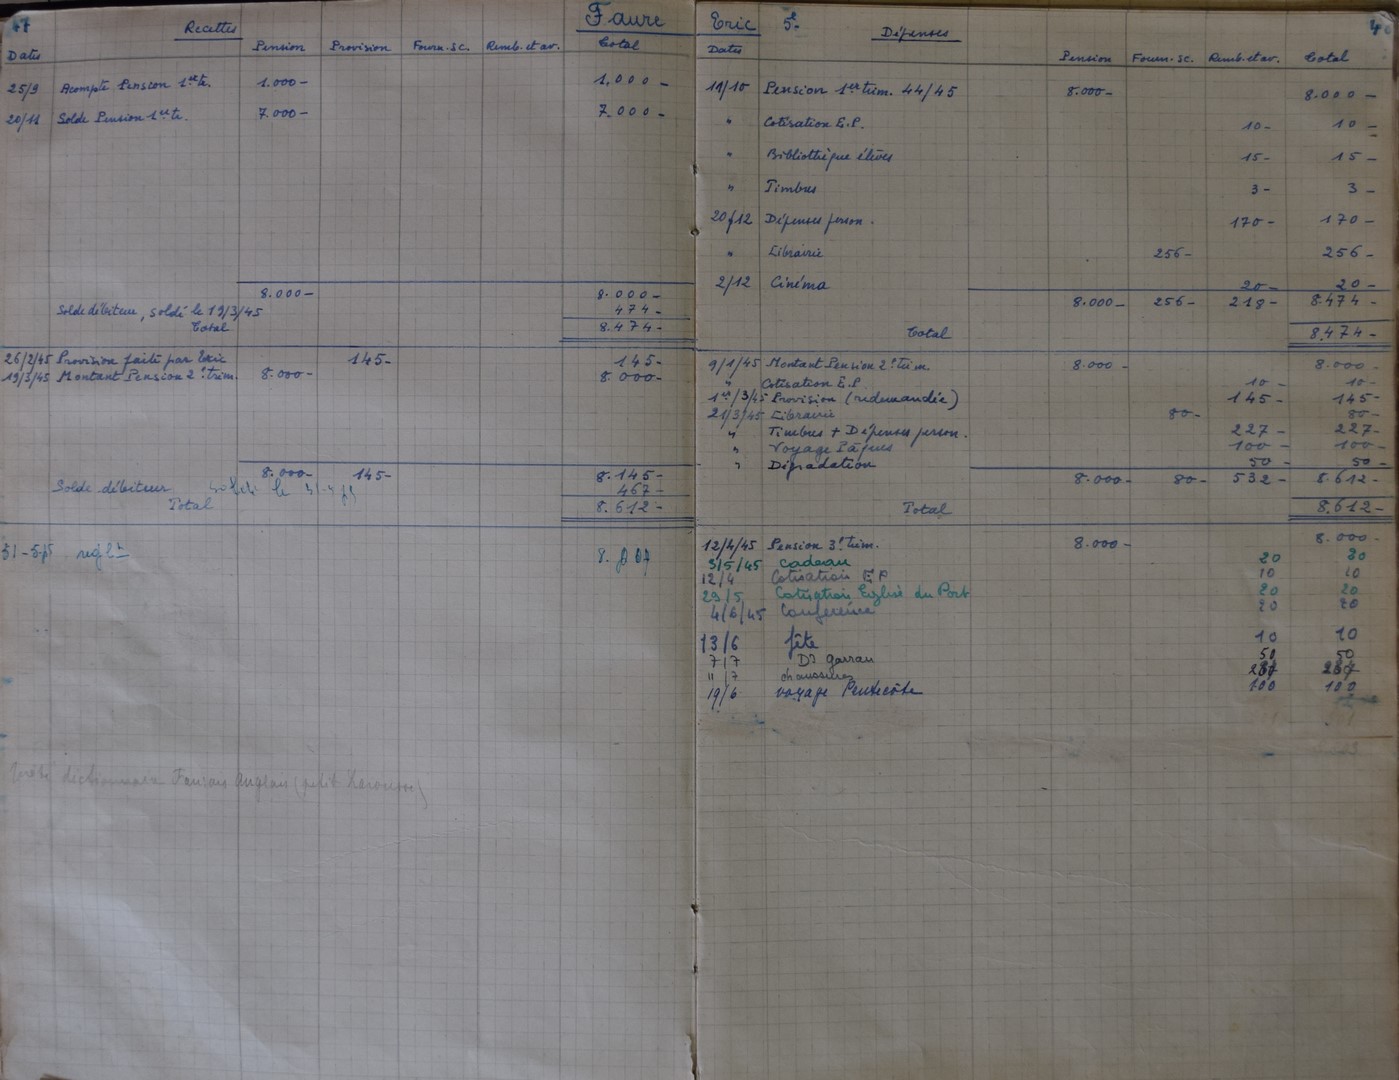 47
Recettes
Faure
Dates
Pension Provision Fourn. sc. Remb. et av. Total
25/9 Acompte Pension 1er te. 1.000- 1.000-
20/11 Solde Pension 1er te. 7.000- 7.000-
8.000- 8.000-
Solde débiteur, soldé le 19/3/45 474-
Total 8.474-
26/2/45 Provision faite par Eric 145- 145-
19/3/45 Montant Pension 2e trim. 8.000- 8.000-
8.000- 145- 8.145-
Solde débiteur 467-
Total 8.612-
regl
dictionnaire Français Anglais (petit Larousse)
Eric 5e
Dépenses
Dates
Pension Fourn. sc. Remb. et av. Total
11/10 Pension 1er trim. 44/45 8.000- 8.000-
" Cotisation E.P. 10- 10-
" Bibliothèque élèves 15- 15-
" Timbres 3- 3-
20/12 Dépenses person. 170- 170-
" Librairie 256- 256-
2/12 Cinéma 20- 20-
8.000- 256- 218- 8.474-
Total 8.474-
9/1/45 Montant Pension 2e trim. 8.000- 8.000-
" Cotisation E.P. 10- 10-
1er/3/45 Provision (redemandée) 145- 145-
21/3/45 Librairie 80- 80-
" Timbres + Dépenses person. 227- 227-
" Voyage Pâques 100- 100-
" Dégradation 50- 50-
8.000- 80- 532- 8.612-
Total 8.612-
12/4/45 Pension 3e trim. 8.000- 8.000-
3/5/45 cadeau 20 20
12/4 Cotisation E P 10 10
29/5 Cotisation Eglise du Port 20 20
4/6/45 Conférence 20 20
13/6 fête 10 10
7/7 Dr garran 50 50
11/7 chaussures
19/6 voyage Pentecôte 100 100